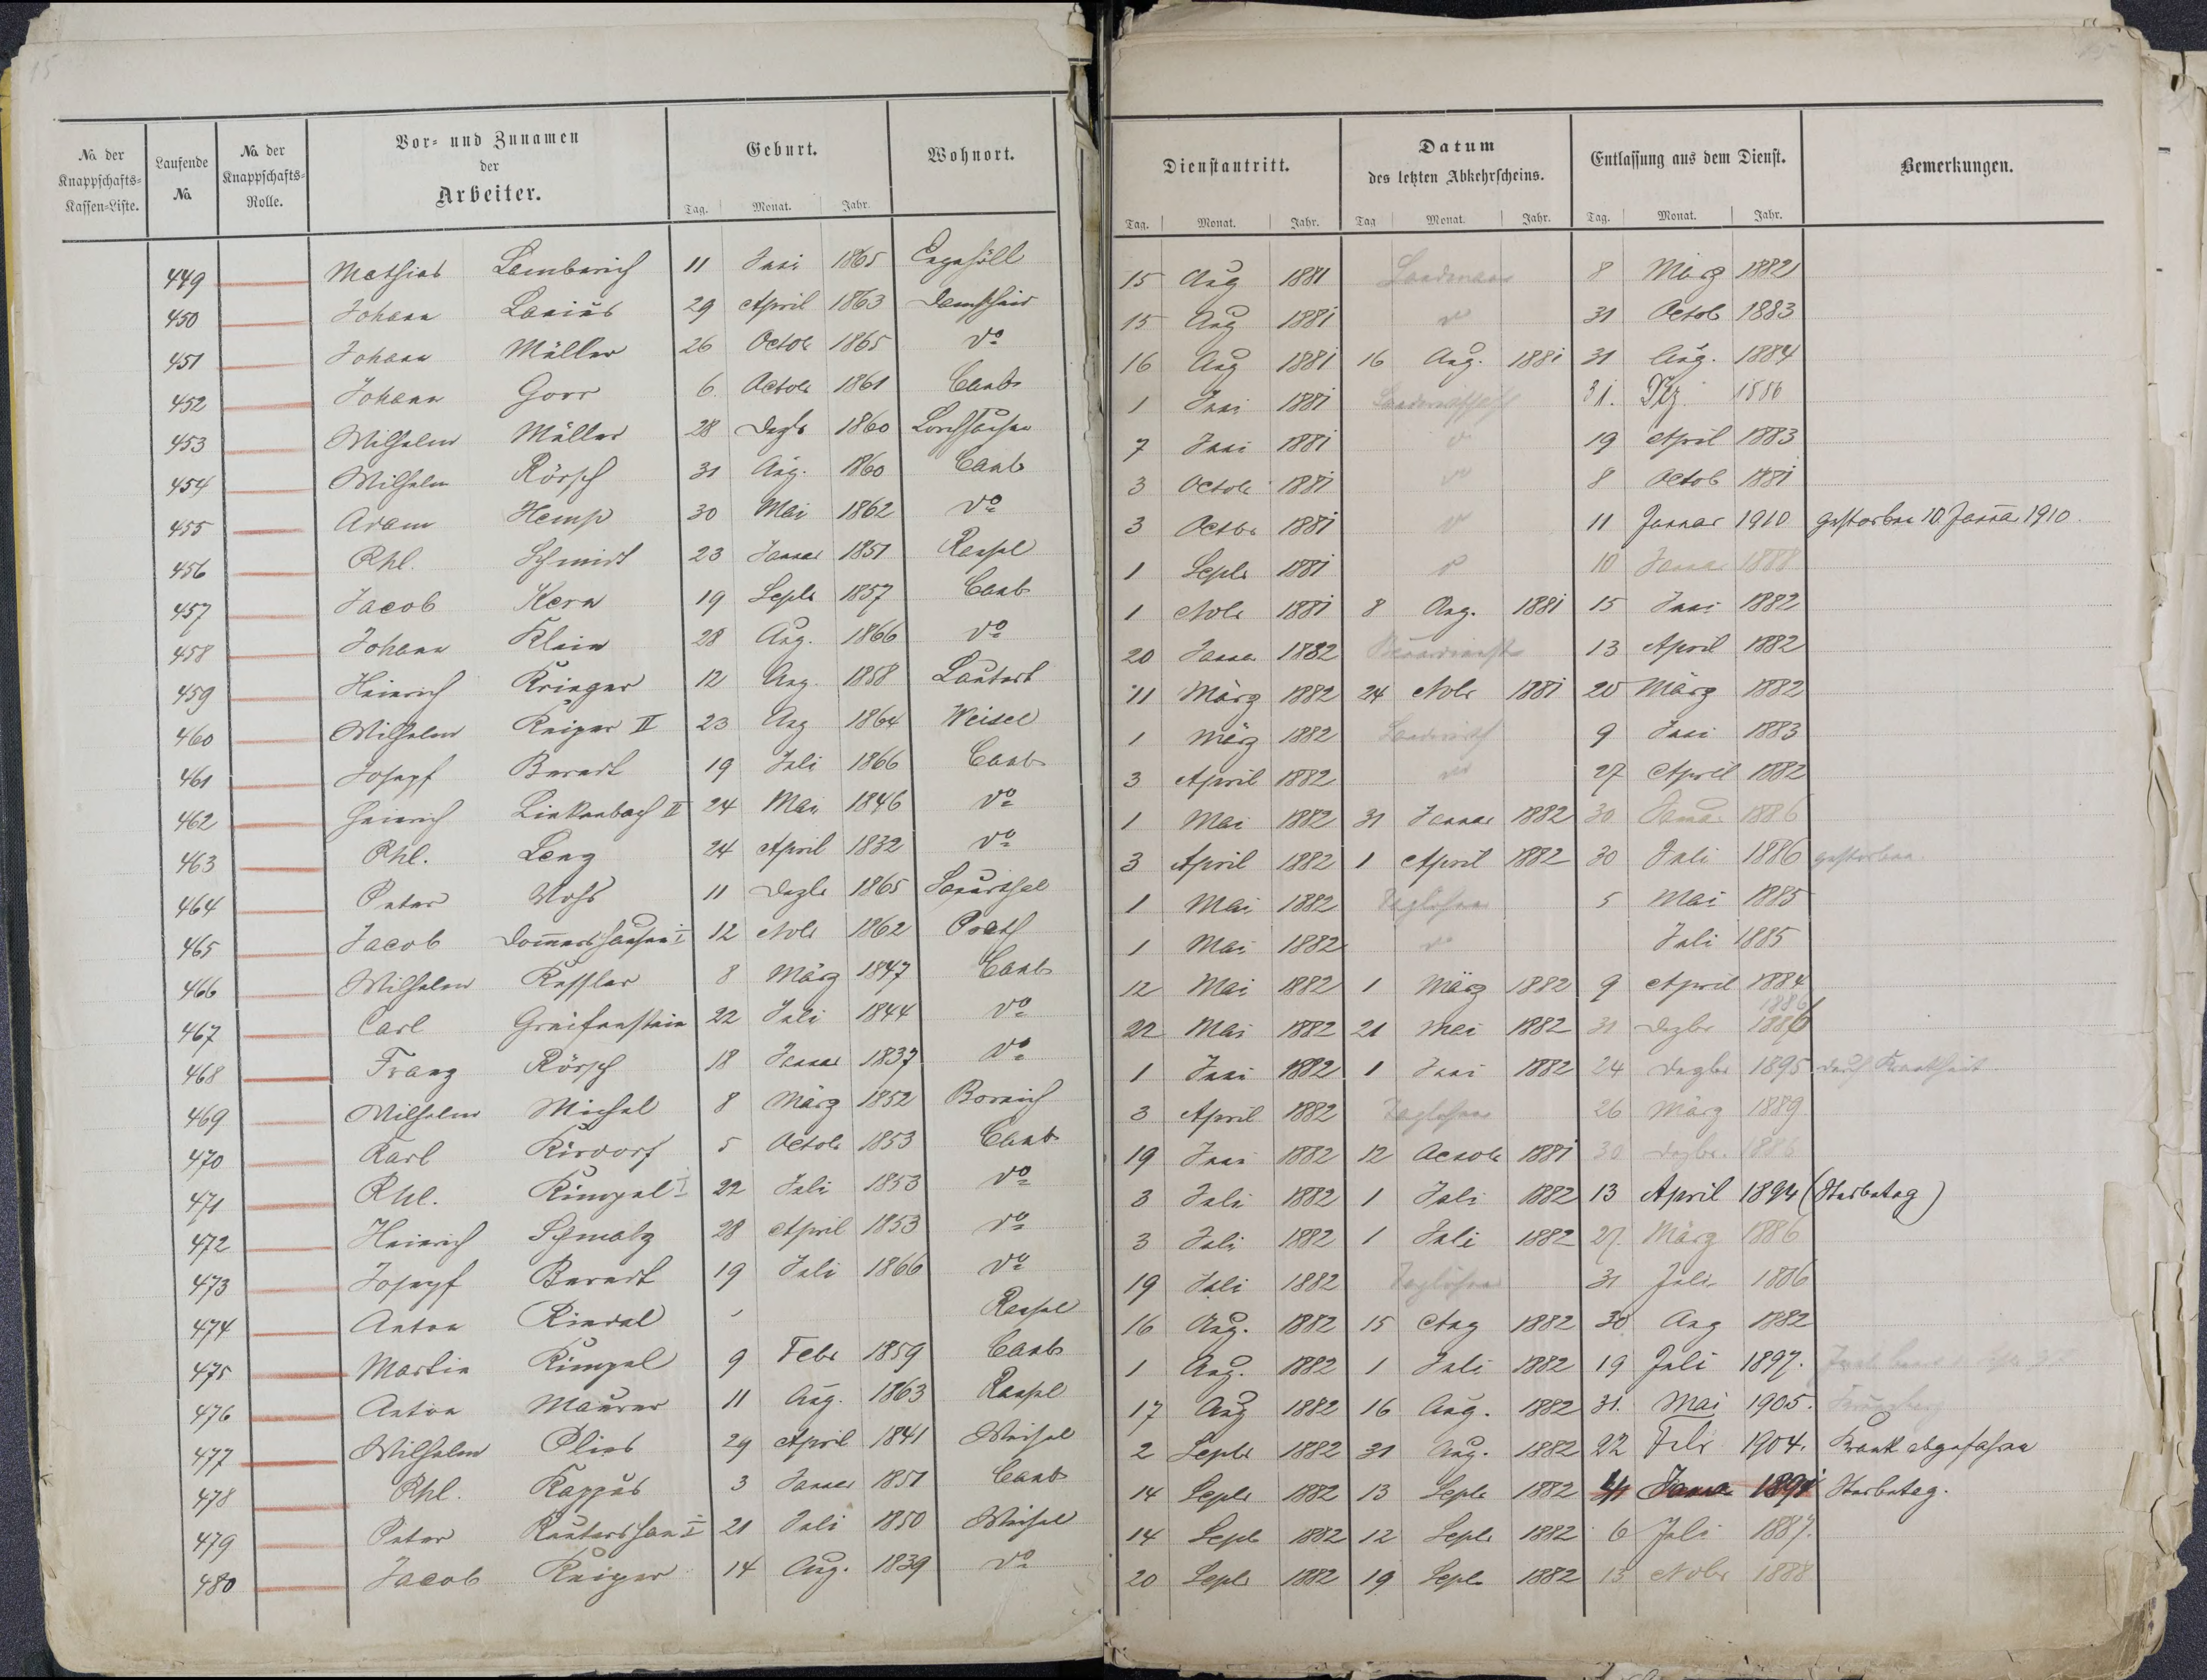 15
No. der Knappschafts-Kassen-Liste. | Laufende No. | No. der Knappschafts-Rolle. | Vor- und Zunamen der Arbeiter. | Geburt. Tag. Monat. Jahr. | Wohnort. | Dienstantritt. Tag. Monat. Jahr. | Datum des letzten Abkehrscheins. Tag Monat. Jahr. | Entlassung aus dem Dienst. Tag. Monat. Jahr. | Bemerkungen.
449 Mathias Lamberich 11 Juni 1865 Engehöll 15 Aug 1881 Landmann 8 März 1882
450 Johann Lanius 29 April 1863 15 Aug 1881 do 31 Octob 1883
451 Johann Müller 26 Octob 1865 do 16 Aug 1881 16 Aug. 1881 31 Aug. 1884
452 Johann Gorr 6 Octob 1861 Caub 1 Juni 1881 31. Dez. 1886
453 Wilhelm Müller 28 Dezb 1860 Lorchhausen 7 Juni 1881 19 April 1883
454 Wilhelm Rörsch 31 Aug. 1860 Caub 3 Octob 1881 8 Octob 1881
455 Adam Kemp 30 Mai 1862 do 3 Octbr 1881 11 Januar 1910 gestorben 10. Januar 1910.
456 Phl. Schmidt 23 Januar 1851 1 Septb 1881 10 Januar 1888
457 Jacob Kern 19 Septb 1857 Caub 1 Novb 1881 8 Aug. 1881 15 Juni 1882
458 Johann Klein 28 Aug. 1866 do 20 Januar 1882 13 April 1882
459 Heinrich Krieger 12 Aug. 1858 Lautert 11 März 1882 24 Novb 1881 20 März 1882
460 Wilhelm Kaiper II 23 Aug 1864 Weisel 1 März 1882 9 Juni 1883
461 Joseph Berard 19 Juli 1866 Caub 3 April 1882 do 27 April 1882
462 Heinrich Linkenbach II 24 Mai 1846 do 1 Mai 1882 31 Januar 1882 30 1886
463 Phl. Lenz 24 April 1832 do 3 April 1882 1 April 1882 30 Juli 1886 gestorben.
464 Peter 11 Dezb 1865 Sauerthal 1 Mai 1882 Taglöhner 5 Mai 1885
465 Jacob Dommershausen I 12 Novb 1862 Prath 1 Mai 1882 do Juli 1885
466 Wilhelm Kessler 8 März 1847 Caub 12 Mai 1882 1 März 1882 9 April 1884
467 Carl Greifenstein 22 Juli 1844 do 22 Mai 1882 21 Mai 1882 31 Dezbr 1886 1886
468 Franz Rörsch 18 Januar 1837 do 1 Juni 1882 1 Juni 1882 24 Dezbr 1895 durch Krankheit
469 Wilhelm Michel 8 März 1852 Bornich 3 April 1882 Taglöhner 26 März 1889
470 Karl Kirdorf 5 Octob 1853 Caub 19 Juni 1882 12 Octob 1881 30 Dezbr. 1886
471 Phl. Kimpel I 22 Juli 1853 do 3 Juli 1882 1 Juli 1882 13 April 1894 (Sterbetag)
472 Heinrich Schmalz 28 April 1853 do 3 Juli 1882 1 Juli 1882 27. März 1886
473 Joseph Berard 19 Juli 1866 do 19 Juli 1882 Taglöhner 31 Juli 1886
474 Anton Rindel 16 Aug. 1882 15 Aug 1882 30 Aug 1882
475 Martin Kimpel 9 Febr 1859 Caub 1 Aug. 1882 1 Juli 1882 19 Juli 1897.
476 Anton Maurer 11 Aug. 1863 17 Aug 1882 16 Aug. 1882 31. Mai 1905.
477 Wilhelm Plies 29 April 1841 Weisel 2 Septb 1882 31 Aug. 1882 22 Febr 1904. Krank abgefahren
478 Phl. Kappus 3 Januar 1851 Caub 14 Septb 1882 13 Septb 1882 Januar 1891 Sterbetag.
479 Peter 21 Juli 1850 Weisel 14 Septb 1882 12 Septb 1882 6 Juli 1887.
480 Jacob Kaiper 14 Aug. 1839 do 20 Septb 1882 19 Septb 1882 15 Novbr 1888